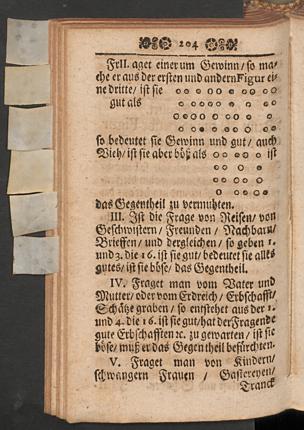 204
Fr II. aget einer um Gewinn / so ma-
che er aus der ersten und andern Figur ei-
ne dritte / ist sie
gut als
so bedeutet sie Gewinn und gut / auch
Vieh / ist sie aber böß als ist
das Gegentheil zu vermuhten.
III. Ist die Frage von Reisen / von
Geschwistern / Freunden / Nachbarn /
Brieffen / und dergleichen / so geben 1.
und 3. die 16. ist sie gut / bedeutet sie alles
gutes / ist sie böse / das Gegentheil.
IV. Fraget man vom Vater und
Mutter / oder vom Erdreich / Erbschafft /
Schätze graben / so entstehet aus der 1.
und 4. die 16. ist sie gut / hat der Fragende
gute Erbschafften ꝛc. zu gewarten / ist sie
böse / muß er das Gegentheil befürchten.
V. Fraget man von Kindern /
schwangern Frauen / Gastereyen /
Tranck